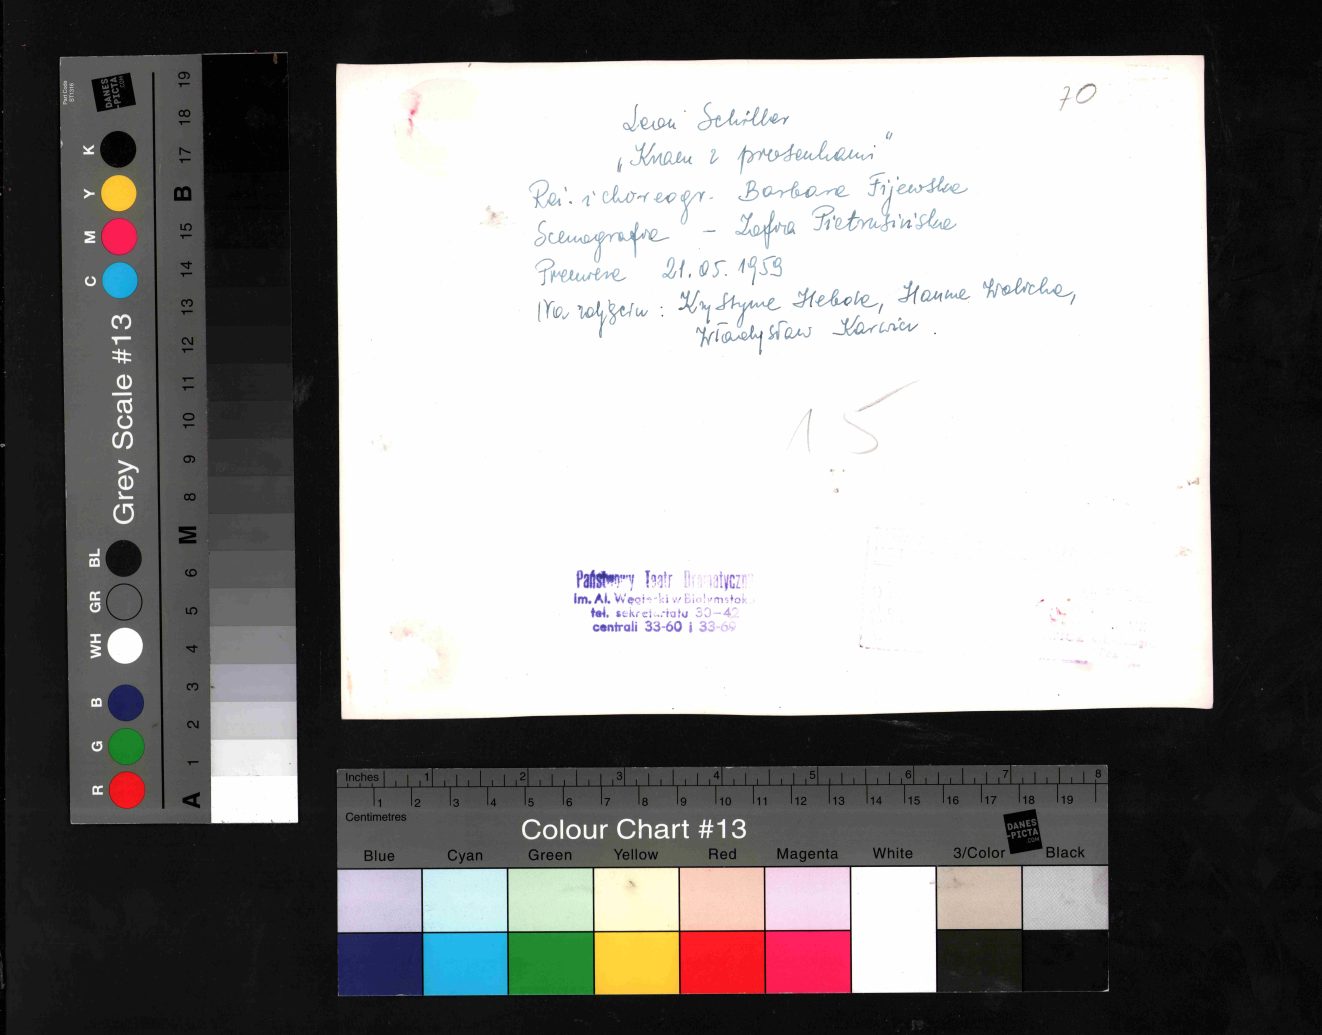 70
Leon Schiller
„Kram z piosenkami"
Reż. i choreogr. Barbara Fijewska
Scenografia – Zofia Pietrusińska
Premiera 21.05.1959
Na zdjęciu: Krystyna Hebda, Hanna Wolicka,
Władysław Karwicz.
15
Państwowy Teatr Dramatyczny
im. Al. Węgierki w Białymstoku
tel. sekretariatu 30-42
centrali 33-60 i 33-69
Part Code
ST1316
DANES
-PICTA
.COM
Grey Scale #13
K
Y
M
C
BL
GR
WH
B
G
R
19
18
17
B
15
14
13
12
11
10
9
8
M
6
5
4
3
2
1
A
Inches 1 2 3 4 5 6 7 8
1 2 3 4 5 6 7 8 9 10 11 12 13 14 15 16 17 18 19
Centimetres
Colour Chart #13
DANES
-PICTA
.COM
Blue Cyan Green Yellow Red Magenta White 3/Color Black